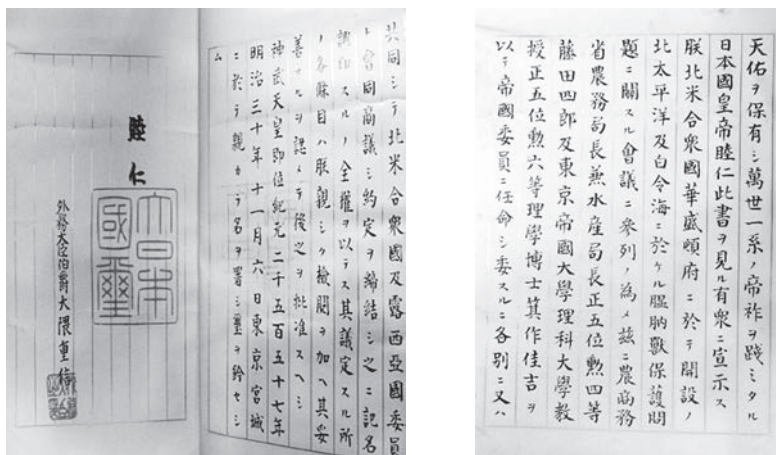 天佑ヲ保有シ萬世一系ノ帝祚ヲ踐ミタル
日本國皇帝睦仁此書ヲ見ル有衆ニ宣示ス
朕北米合衆國華盛頓府ニ於テ開設ノ
北太平洋及白令海ニ於ケル膃肭獸保護問
題ニ關スル會議ニ参列ノ為メ茲ニ農商務
省農務局長兼水産局長正五位勲四等
藤田四郎及東京帝國大學理科大學教
授正五位勲六等理學博士箕作佳吉ヲ
以テ帝國委員ニ任命シ委スルニ各別ニ又ハ
共同シテ北米合衆國及露西亞國委員
ト會同商議シ約定ヲ締結シ之ニ記名
調印スルノ全權ヲ以テス其議定スル所
ノ各條目ハ朕親シク檢閲ヲ加ヘ其妥
善ナルヲ認メテ後之ヲ批准スヘシ
神武天皇即位紀元二千五百五十七年
明治三十年十一月六日東京宮城
ニ於テ親カラ名ヲ署シ璽ヲ鈐セシ
ム
睦仁
大日本國璽
外務大臣伯爵大隈重信